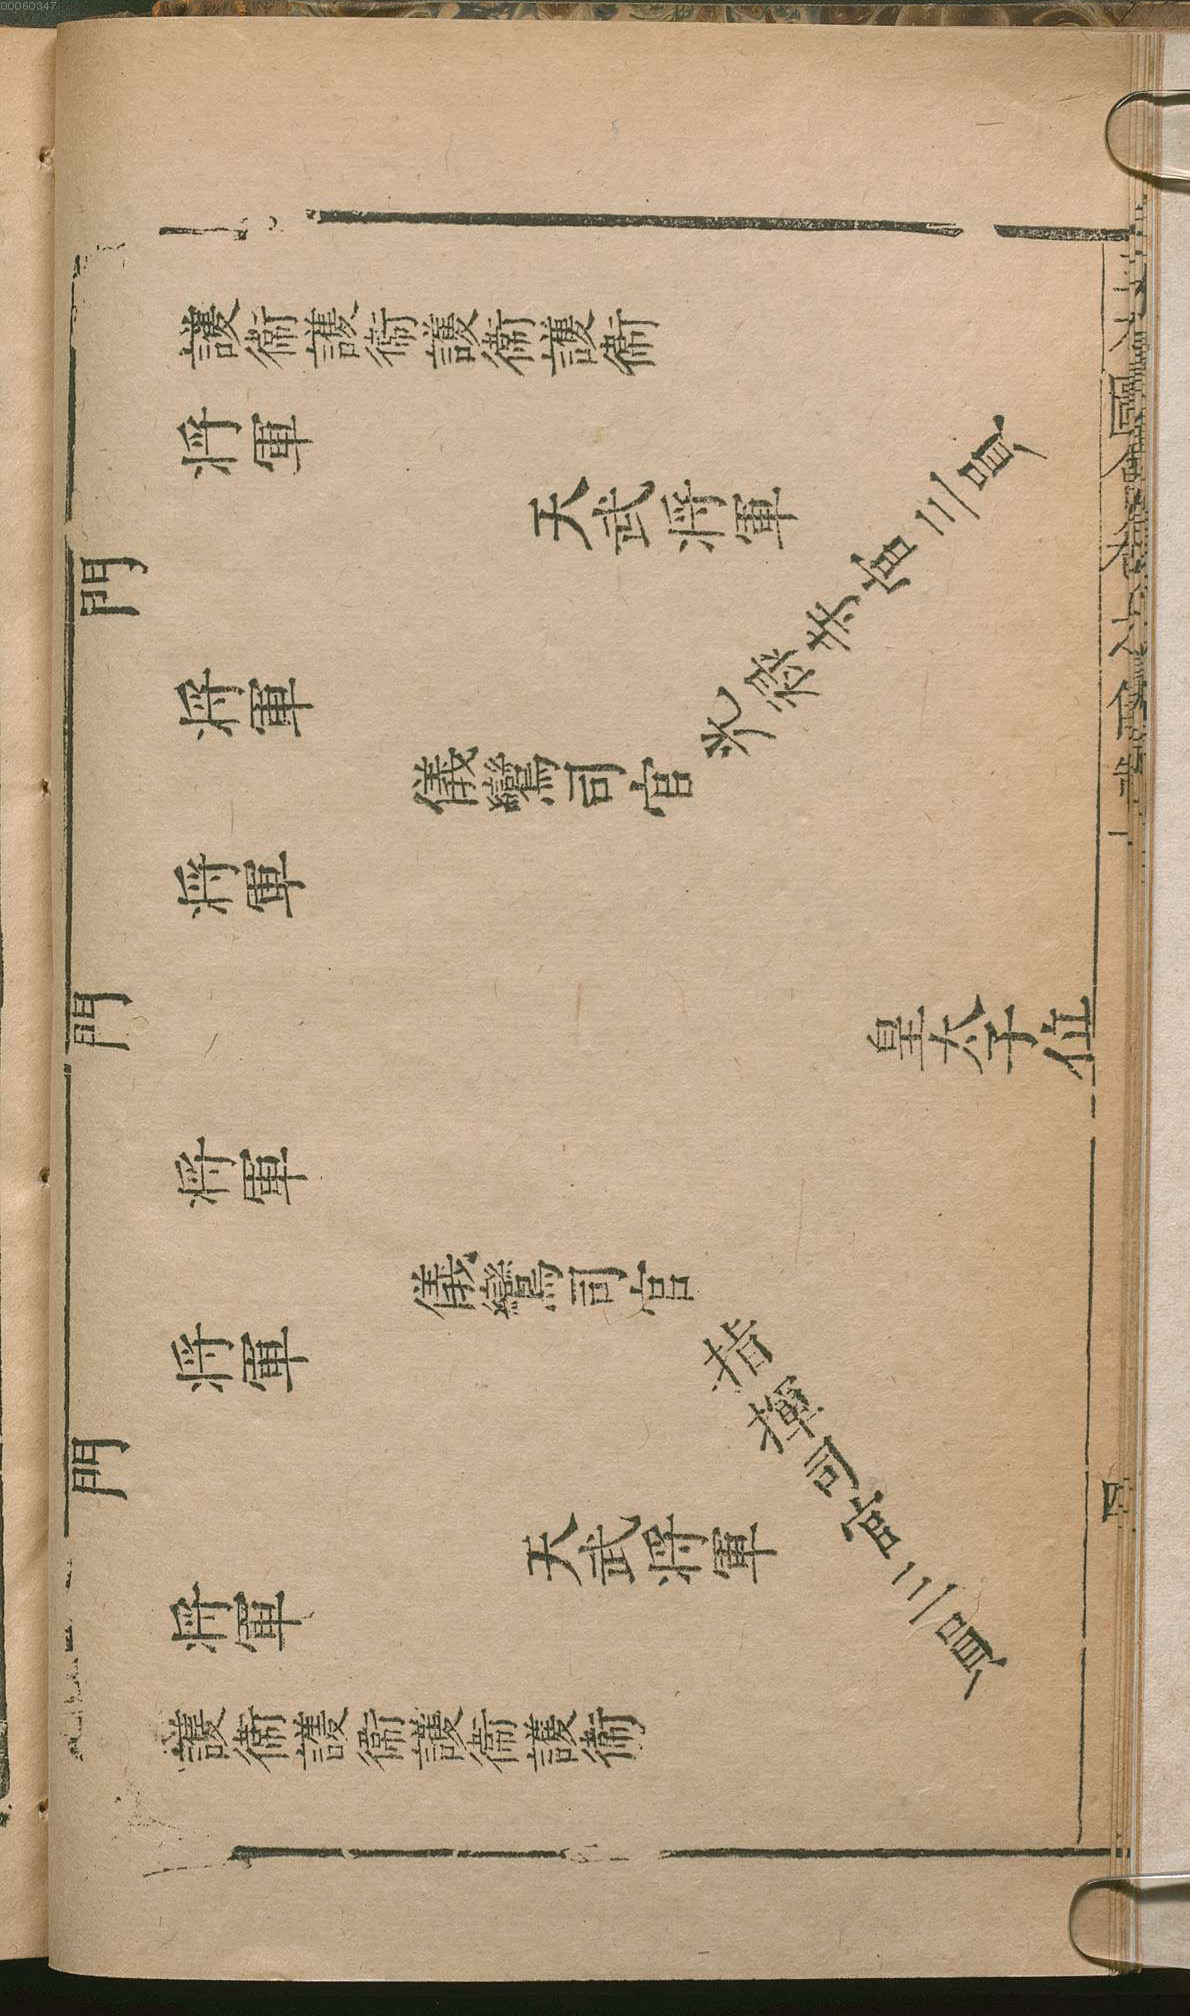 護衛護衛護衛護衛
將軍
天武將軍
光祿寺官三員
門
將軍
儀鸞司官
將軍
門
皇太子位
將軍
儀鸞司官
將軍
指揮司官三員
門
天武將軍
將軍
護衛護衛護衛護衛
圖會卷之儀制
四
00060347